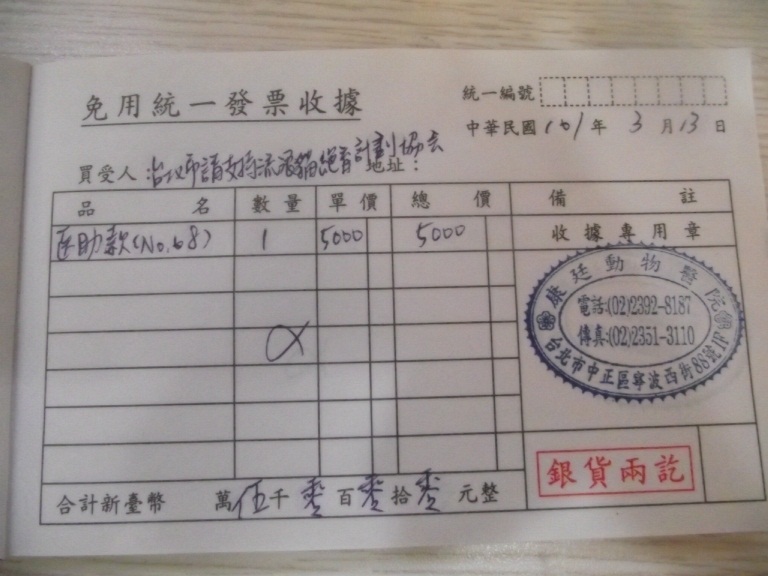 免用統一發票收據
統一編號
中華民國 101 年 3 月 13 日
買受人：台北市請支持流浪貓絕育計劃協會 地址：
品名 數量 單價 總價 備註
醫助款(No.68) 1 5000 5000 收據專用章
康廷動物醫院
電話:(02)2392-8187
傳真:(02)2351-3110
台北市中正區寧波西街88號1F
銀貨兩訖
合計新臺幣 萬伍千零百零拾零元整